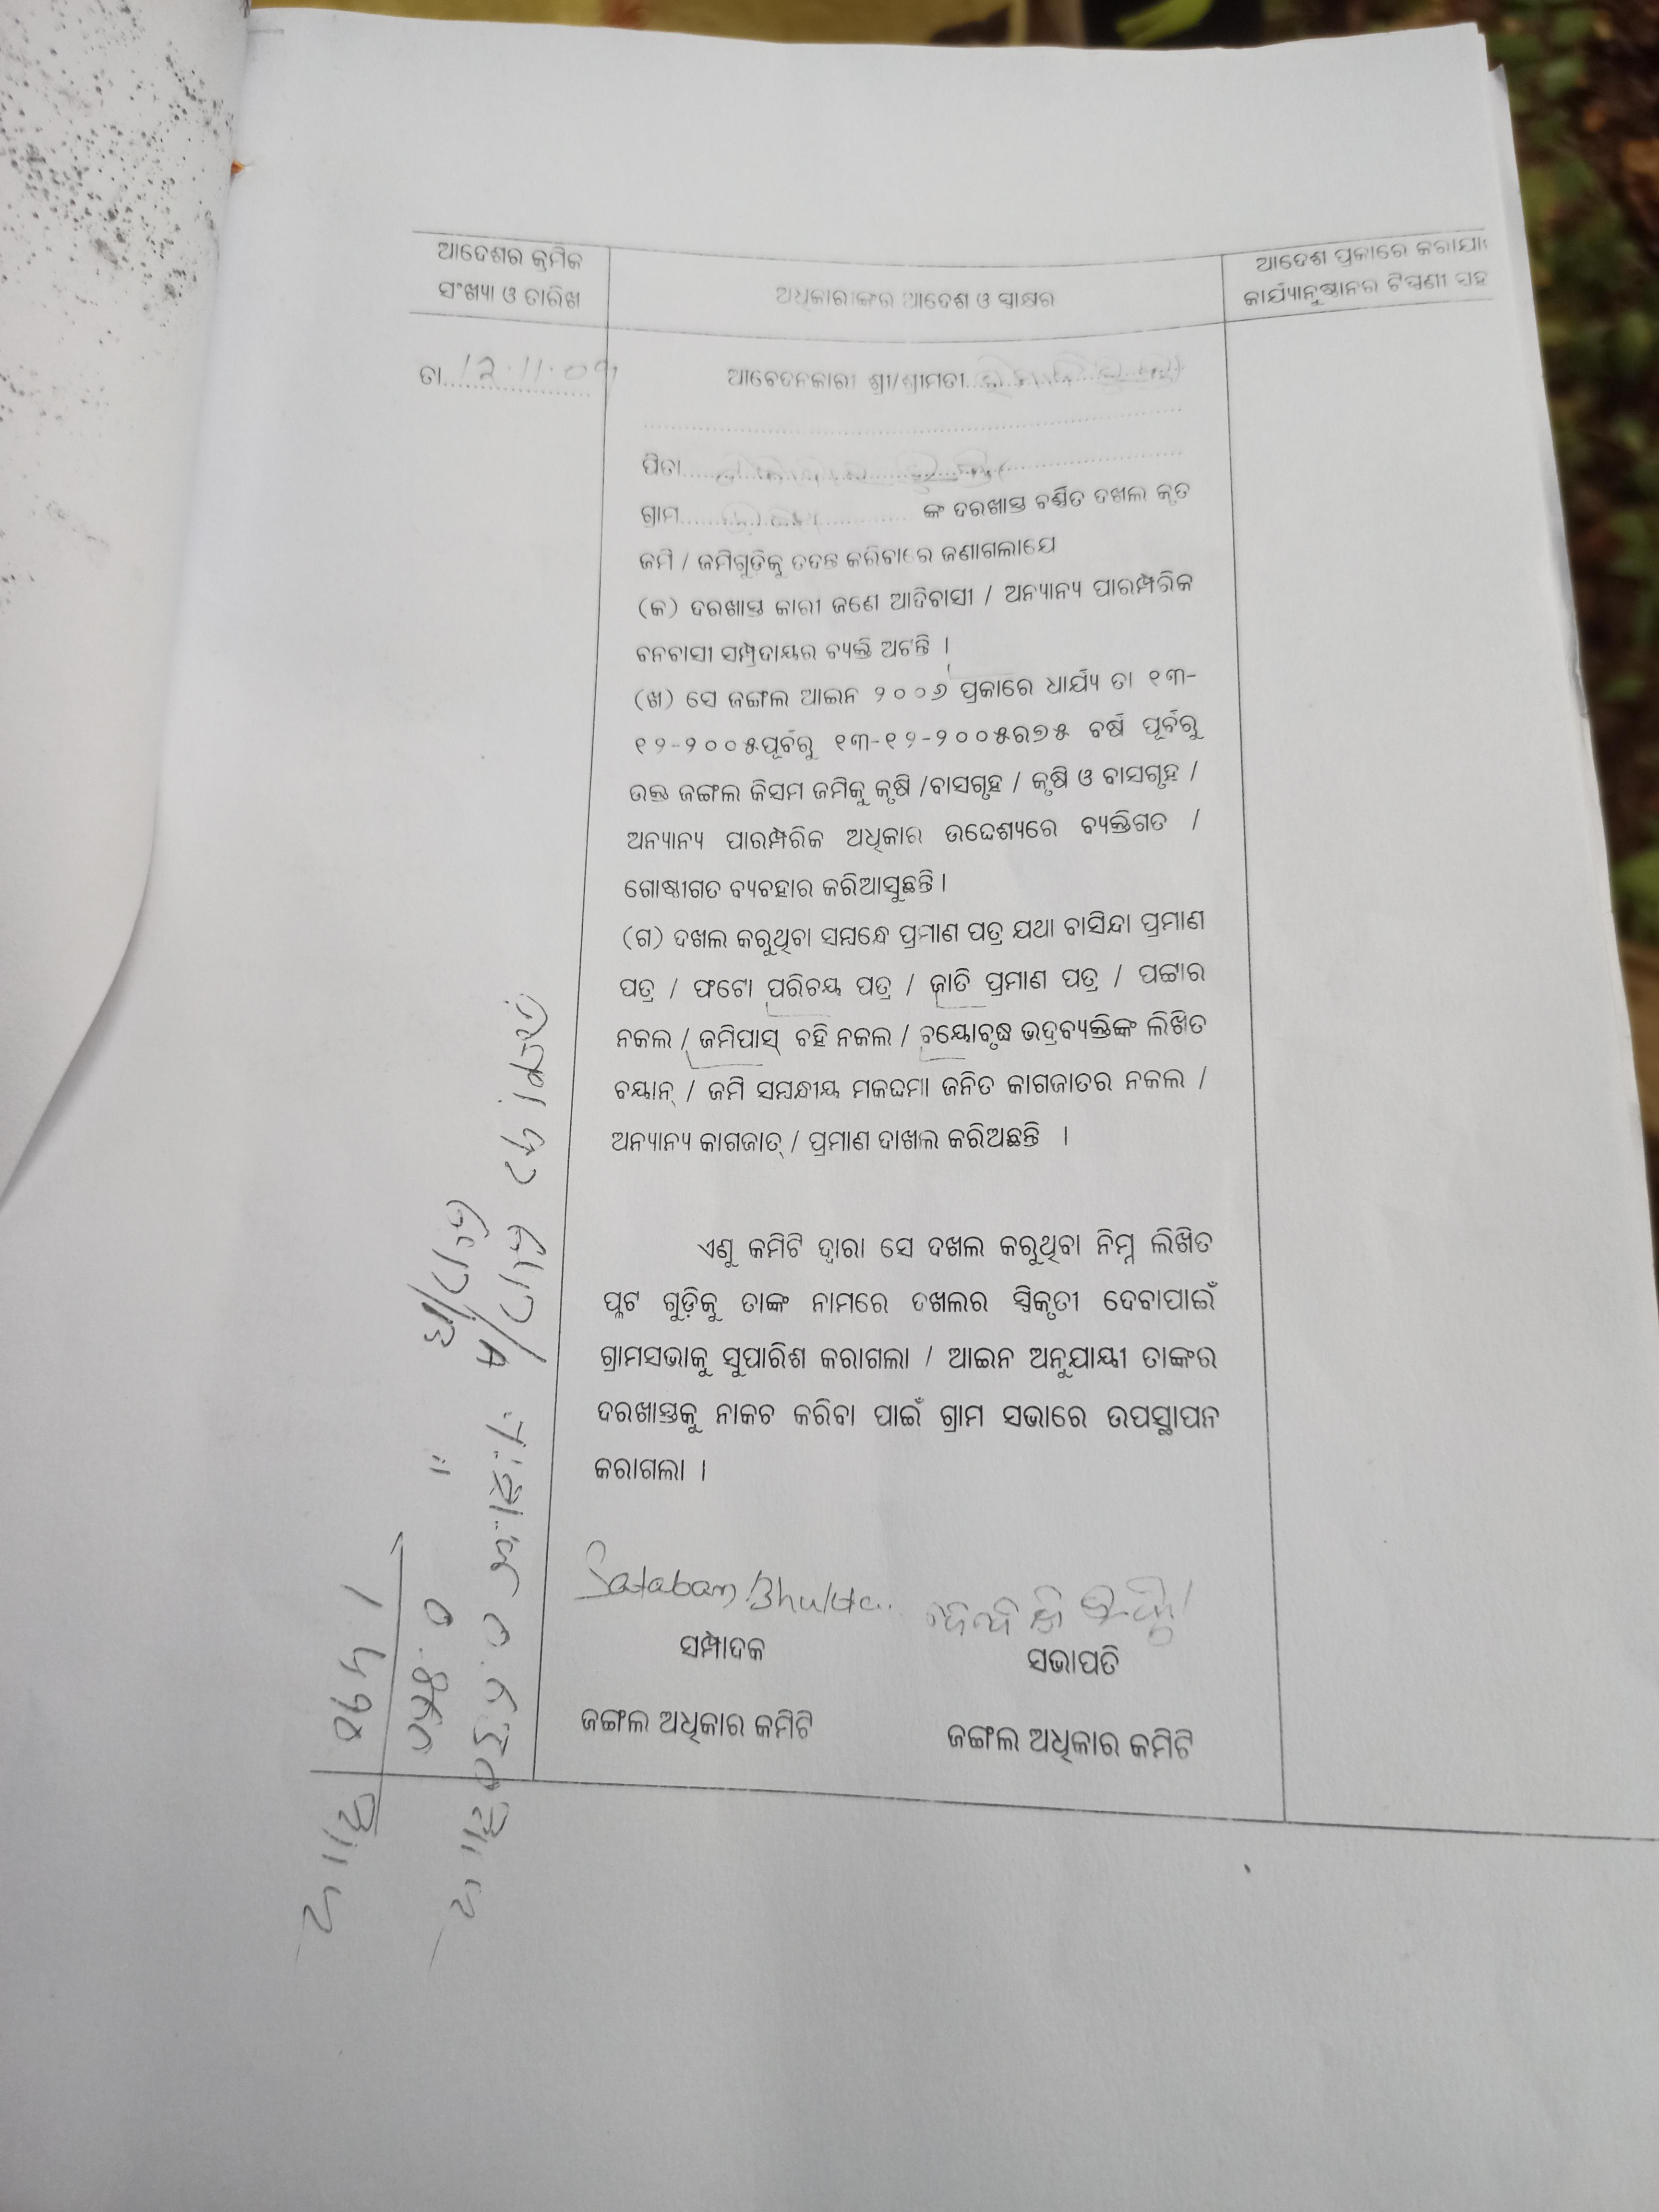 ଆଦେଶର କ୍ରମିକ
ସଂଖ୍ୟା ଓ ତାରିଖ
ଅଧିକାରୀଙ୍କର ଆଦେଶ ଓ ସ୍ୱାକ୍ଷର
ଆଦେଶ ପ୍ରକାରେ କରାଯା
କାର୍ଯ୍ୟାନୁଷ୍ଠାନର ଟିପ୍ପଣୀ ସହ
ତା 12.11.09
ଆବେଦନକାରୀ ଶ୍ରୀ/ଶ୍ରୀମତୀ
ପିତା
ଗ୍ରାମ ଙ୍କ ଦରଖାସ୍ତ ବର୍ଣ୍ଣିତ ଦଖଲ କୃତ
ଜମି / ଜମିଗୁଡ଼ିକୁ ତଦନ୍ତ କରିବାରେ ଜଣାଗଲାଯେ
(କ) ଦରଖାସ୍ତ କାରୀ ଜଣେ ଆଦିବାସୀ / ଅନ୍ୟାନ୍ୟ ପାରମ୍ପରିକ
ବନବାସୀ ସମ୍ପ୍ରଦାୟର ବ୍ୟକ୍ତି ଅଟନ୍ତି ।
(ଖ) ସେ ଜଙ୍ଗଲ ଆଇନ ୨୦୦୬ ପ୍ରକାରେ ଧାର୍ଯ୍ୟ ତା ୧୩-
୧୨-୨୦୦୫ପୂର୍ବରୁ ୧୩-୧୨-୨୦୦୫ର୭୫ ବର୍ଷ ପୂର୍ବରୁ
ଉକ୍ତ ଜଙ୍ଗଲ କିସମ ଜମିକୁ କୃଷି /ବାସଗୃହ / କୃଷି ଓ ବାସଗୃହ /
ଅନ୍ୟାନ୍ୟ ପାରମ୍ପରିକ ଅଧିକାର ଉଦ୍ଦେଶ୍ୟରେ ବ୍ୟକ୍ତିଗତ /
ଗୋଷ୍ଠୀଗତ ବ୍ୟବହାର କରିଆସୁଛନ୍ତି ।
(ଗ) ଦଖଲ କରୁଥିବା ସମ୍ବନ୍ଧେ ପ୍ରମାଣ ପତ୍ର ଯଥା ବାସିନ୍ଦା ପ୍ରମାଣ
ପତ୍ର / ଫଟୋ ପରିଚୟ ପତ୍ର / ଜାତି ପ୍ରମାଣ ପତ୍ର / ପଟ୍ଟାର
ନକଲ / ଜମିପାସ୍ ବହି ନକଲ / ବୟୋବୃଦ୍ଧ ଭଦ୍ରବ୍ୟକ୍ତିଙ୍କ ଲିଖିତ
ବୟାନ୍ / ଜମି ସମ୍ବନ୍ଧୀୟ ମକଦ୍ଦମା ଜନିତ କାଗଜାତର ନକଲ /
ଅନ୍ୟାନ୍ୟ କାଗଜାତ୍ / ପ୍ରମାଣ ଦାଖଲ କରିଅଛନ୍ତି ।
ଏଣୁ କମିଟି ଦ୍ୱାରା ସେ ଦଖଲ କରୁଥିବା ନିମ୍ନ ଲିଖିତ
ପ୍ଳଟ ଗୁଡ଼ିକୁ ତାଙ୍କ ନାମରେ ଦଖଲର ସ୍ୱିକୃତୀ ଦେବାପାଇଁ
ଗ୍ରାମସଭାକୁ ସୁପାରିଶ କରାଗଲା / ଆଇନ ଅନୁଯାୟୀ ତାଙ୍କର
ଦରଖାସ୍ତକୁ ନାକଚ କରିବା ପାଇଁ ଗ୍ରାମ ସଭାରେ ଉପସ୍ଥାପନ
କରାଗଲା ।
Satabam Bhukta
ସମ୍ପାଦକ
ସଭାପତି
ଜଙ୍ଗଲ ଅଧିକାର କମିଟି
ଜଙ୍ଗଲ ଅଧିକାର କମିଟି